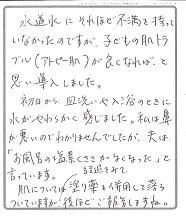 水道水にそれほど不満を持って
いなかったのですが、子どもの肌トラ
ブル(アトピー肌)が良くなれば、と
思い導入しました。
初日から、皿洗いや入浴のときに
水がやわらかく感じました。私は鼻
が悪いのでわかりませんでしたが、夫は
「お風呂の塩素くささがなくなった」と
言っています。
肌については塗り薬を併用して落ち
ついていますが、後ほどご報告しますね。